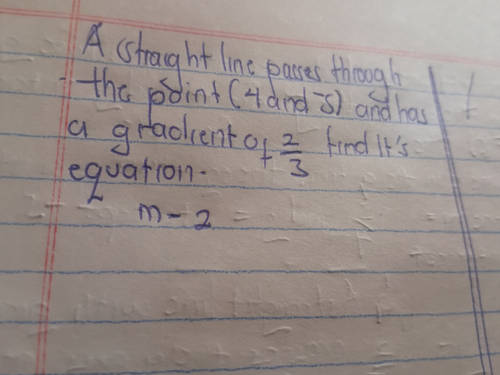 A straight line passes through
the point (4 and -5) and has
a gradient of 2/3 find it's
equation.
m - 2